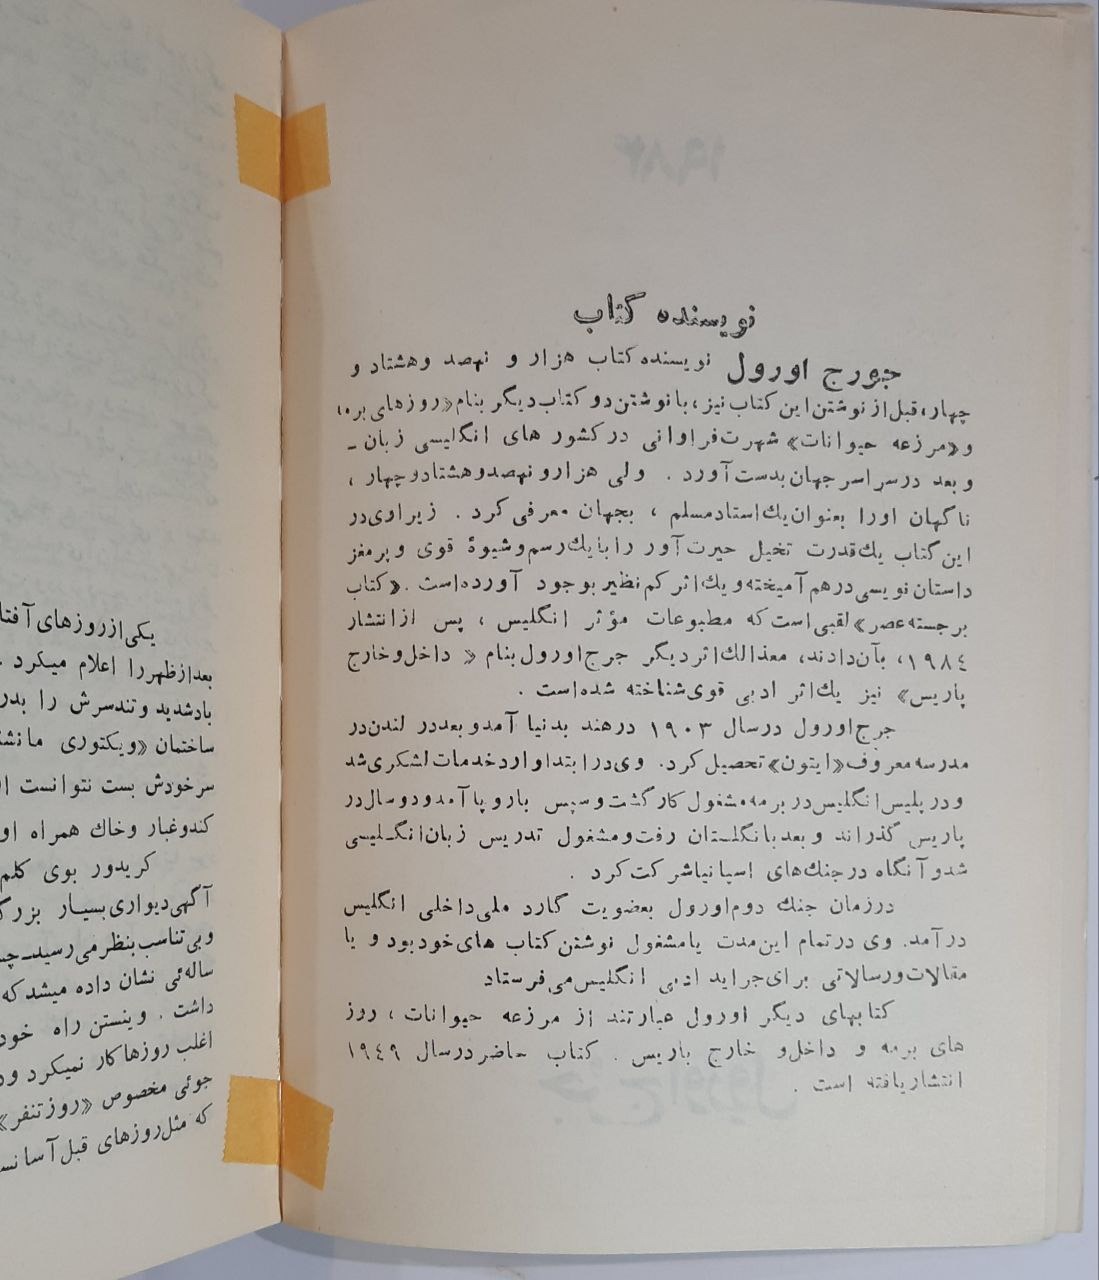 نویسنده کتاب
جورج اورول نویسنده کتاب هزار و نهصد وهشتاد و
چهار، قبل از نوشتن این کتاب نیز، با نوشتن دو کتاب دیگر بنام «روزهای برمه»
و «مرزعه حیوانات» شهرت فراوانی در کشور های انگلیسی زبان ـ
و بعد در سراسر جهان بدست آورد . ولی هزار و نهصد و هشتاد و چهار ،
ناگهان اورا بعنوان یك استاد مسلم ، بجهان معرفی کرد . زیرا وی در
این کتاب یك قدرت تخیل حیرت آور را با یك رسم و شیوۀ قوی و پرمغز
داستان نویسی در هم آمیخته و یك اثر کم نظیر بوجود آورده است . «کتاب
برجسته عصر» لقبی است که مطبوعات مؤثر انگلیس ، پس از انتشار
۱۹۸٤، بآن دادند، معذالك اثر دیگر جرج اورول بنام « داخل و خارج
پاریس» نیز یك اثر ادبی قوی شناخته شده است .
جرج اورول در سال ۱۹۰۳ در هند بدنیا آمد و بعد در لندن در
مدرسه معروف «ایتون» تحصیل کرد. وی در ابتدا وارد خدمات لشکری شد
و در پلیس انگلیس در برمه مشغول کار گشت و سپس باروپا آمد و دو سال در
پاریس گذراند و بعد بانگلستان رفت و مشغول تدریس زبان انگـلیسی
شد و آنگاه در جنك های اسپانیا شرکت کرد .
در زمان جنك دوم اورول بعضویت گارد ملی داخلی انگلیس
در آمد. وی در تمام این مدت یا مشغول نوشتن کتاب های خود بود و یا
مقالات و رسالاتی برای جراید ادبی انگلیس می فرستاد
کتابهای دیگر اورول عبارتند از مرزعه حیوانات ، روز
های برمه و داخل و خارج پاریس . کتاب حاضر در سال ۱۹٤۹
انتشار یافته است .
یکی از روزهای
بعد از ظهر را اعلام میکرد
باد شدید و تند سرش را
ساختمان «ویکتوری
سر خودش بست نتوانست
کند و غبار و خاك همراه
کریدور بوی کلم
آگهی دیواری بسیار
و بی تناسب بنظر می رسید ـ
ساله ئی نشان داده میشد که
داشت . وینستن راه
اغلب روزها کار نمیکرد
جوئی مخصوص «روز تنفر»
که مثل روزهای قبل